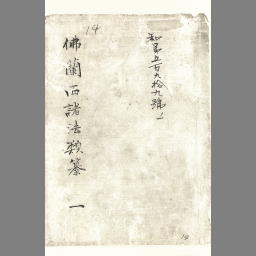 14
知第五百九拾九號ノ一
佛蘭西諸法類纂 一
14